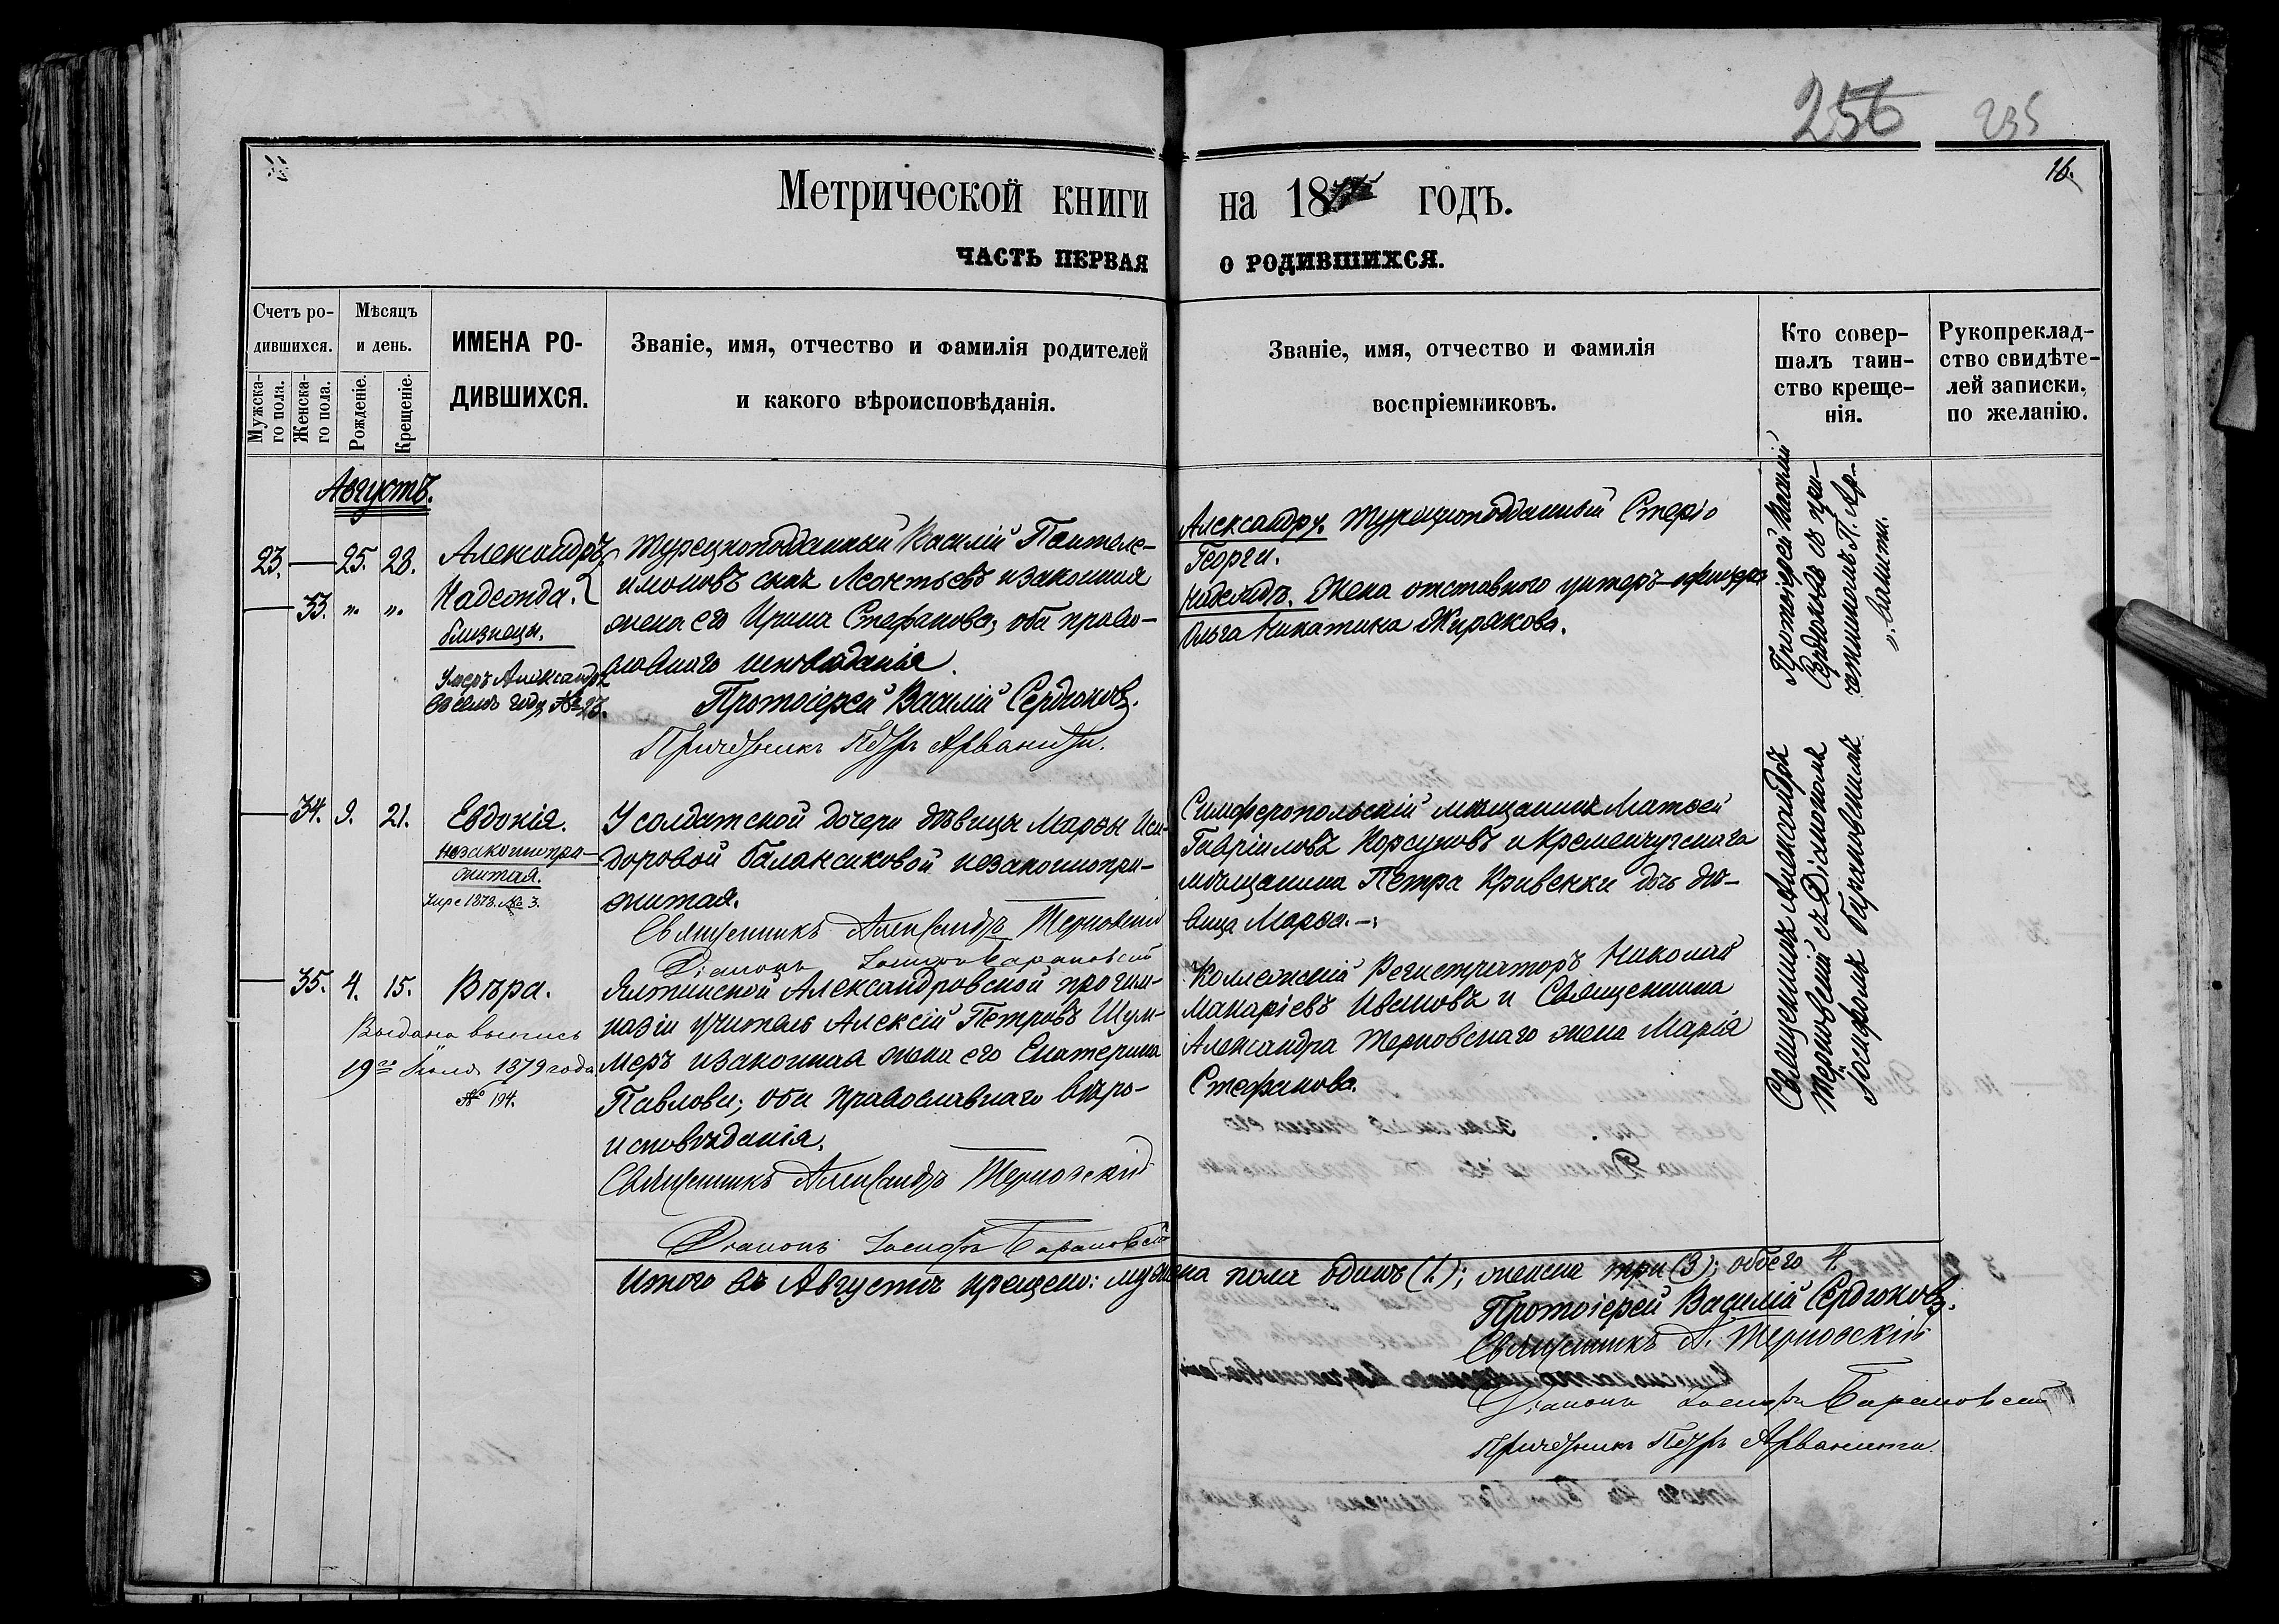 256 235
16.
Метрической книги на 18 годъ.
ЧАСТЬ ПЕРВАЯ О РОДИВШИХСЯ.
Счетъ ро-
дившихся.
Мужска-
го пола.
Женска-
го пола.
Мѣсяцъ
и день.
Рожденіе.
Крещеніе.
ИМЕНА РО-
ДИВШИХСЯ.
Званіе, имя, отчество и фамилія родителей
и какого вѣроисповѣданія.
Званіе, имя, отчество и фамилія
воспріемниковъ.
Кто совер-
шалъ таин-
ство креще-
нія.
Рукоприклад-
ство свидѣте-
лей записки,
по желанію.
Августъ.
23. — 25. 28.
— 33. „ „
Александръ
Надежда.
близнецы.
Умеръ Александръ
въ семъ году № 23.
Турецкоподданный Василій Пантеле-
имоновъ сынъ Леонтьевъ и законная
жена его Ирина Стефанова, оба право-
славнаго исповѣданія.
Протоіерей Василій Сердюковъ.
Причетникъ Петръ Арванити.
Александру. Турецкоподданный Стеріо
Георги.
Надеждѣ. Жена отставного унтеръ-офицера
Ольга Никитина Жирякова.
Протоіерей Василій
Сердюковъ съ при-
четникомъ П. Ар-
ванити.
— 34. 9. 21.
Евдокія.
незаконнори-
житая.
1878. № 3.
У солдатской дочери дѣвицы Марѳы Иси-
доровой Балаксиковой незаконнопри-
житая.
Священникъ Александръ Терновскій
Діаконъ Іосифъ Барановскій
Симферопольскій мѣщанинъ Матвей
Гавріиловъ Корсуновъ и Кременчугскаго
мѣщанина Петра Кривенки дочь дѣ-
вица Марья.
— 35. 4. 15.
Вѣра.
Выдана выпись
19го Іюля 1879 года
№ 194.
Ялтинской Александровской прогим-
назіи учитель Алексій Петровъ Шум-
меръ и законная жена его Екатерина
Павлова; оба православнаго вѣро-
исповѣданія.
Священникъ Александръ Терновскій
Діаконъ Іосифъ Барановскій
Коллежскій Регистраторъ Николай
Макаріевъ Ивановъ и Священника
Александра Терновскаго жена Марія
Стефанова.
Священникъ Александръ
Терновскій съ Діакономъ
Іосифомъ Барановскимъ.
Итого въ Августѣ крещено: мужска пола одинъ (1.); женска три (3); обоего 4.
Протоіерей Василій Сердюковъ.
Священникъ А. Терновскій
Діаконъ Іосифъ Барановскій
Причетникъ Петръ Арванити.